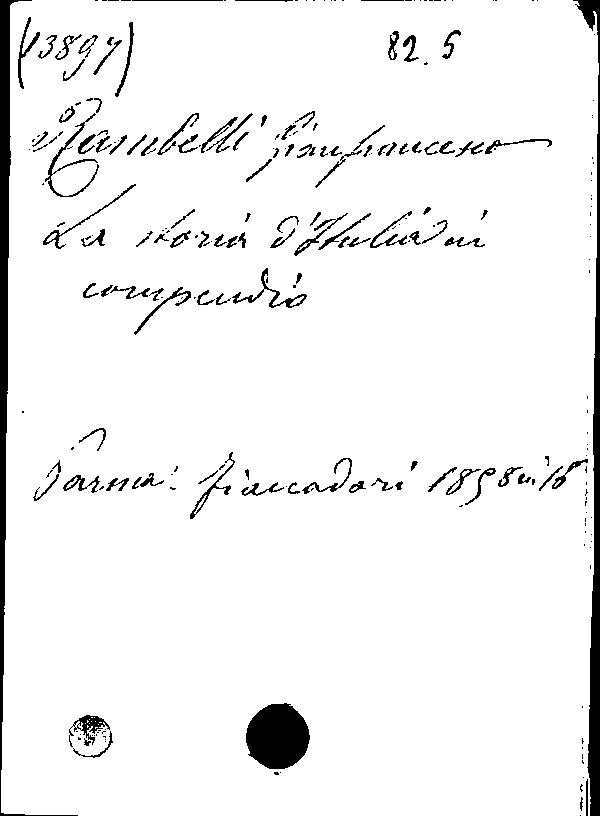 (13897) 82.5
Rambelli Gianfrancesco
La storia d'Italia in
compendio
Parma: Fiaccadori 1858 in 18